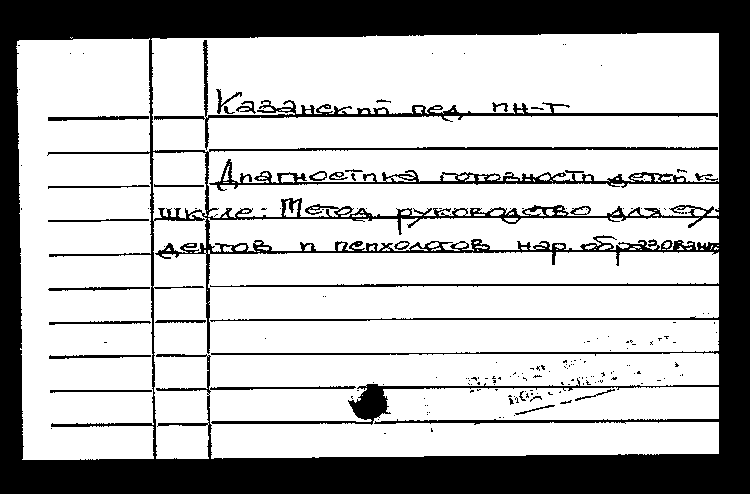 Казанский пед. ин-т
Диагностика готовности детей к
школе: Метод. руководство для сту-
дентов и психологов нар. образован